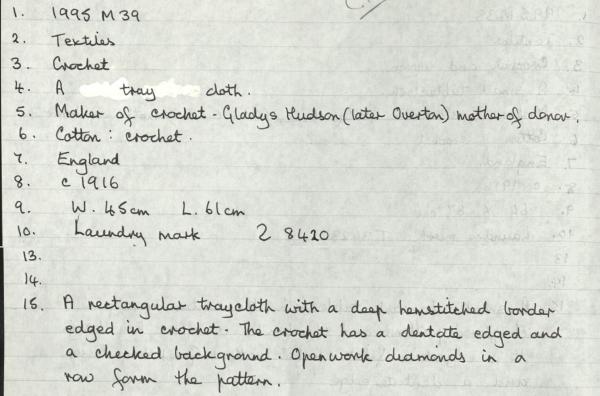 1. 1995 M 39
2. Textiles
3. Crochet
4. A tray cloth.
5. Maker of crochet - Gladys Hudson (later Overton) mother of donor.
6. Cotton : crochet.
7. England
8. c 1916
9. W. 45cm L. 61cm
10. Laundry mark 2 8420
13.
14.
15. A rectangular traycloth with a deep hemstitched border
edged in crochet. The crochet has a dentate edged and
a checked background. Openwork diamonds in a
row form the pattern.